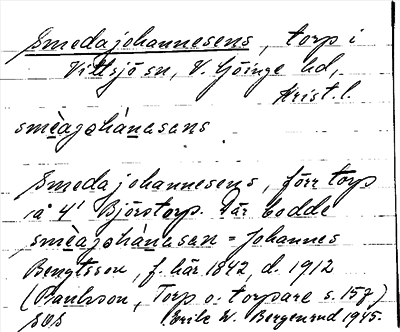 Smedajohannesens, torp i
Vittsjö sn, V. Göinge hd,
Krist. l.
smèagǝhánǝsans
Smedajohannesens, förr torp
å 4' Björstorp. Där bodde
smèagǝhánǝsan = Johannes
Bengtsson, f. här 1842, d. 1912
(Paulsson, Torp o. torpare s. 157)
Erik W. Bergenrud 1945.